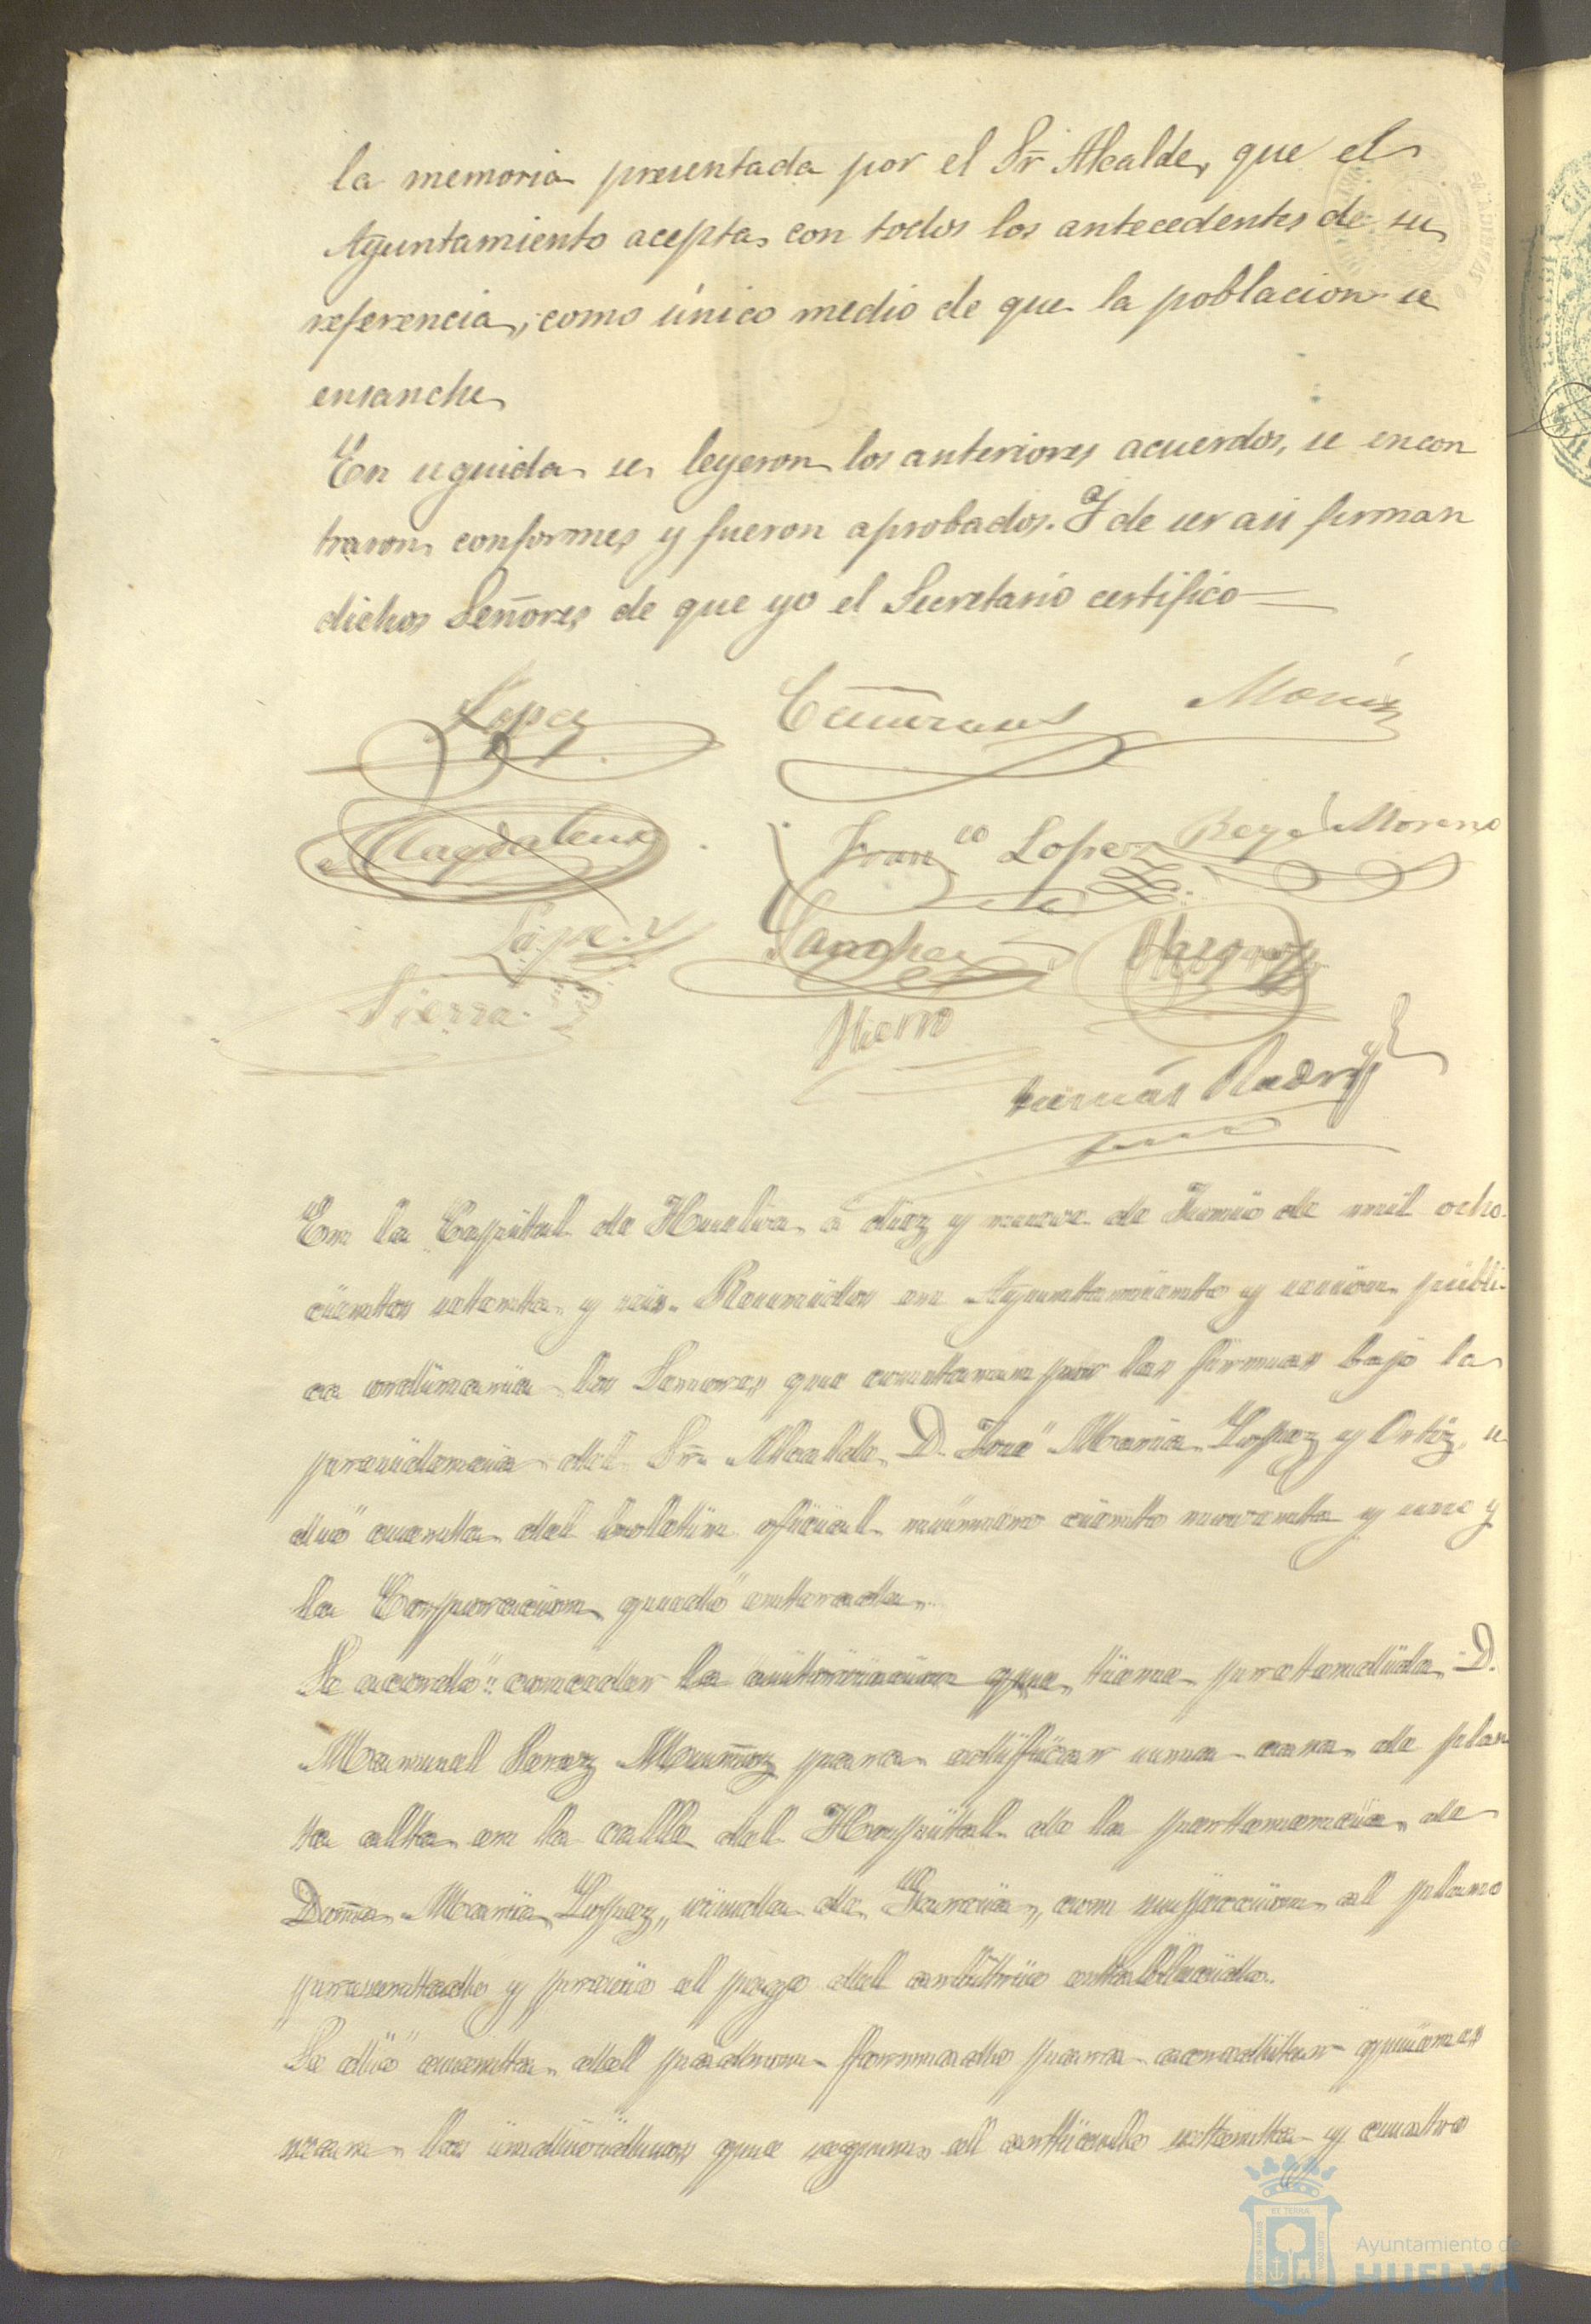 la memoria presentada por el Sr Alcalde, que el
Ayuntamiento acepta con todos los antecedentes de su
referencia, como único medio de que la poblacion se
ensanche
En seguida se leyeron los anteriores acuerdos, se encon
traron conformes y fueron aprobados. Y de ser asi firman
dichos Señores de que yo el Secretario certifico
Lopez
Magdalena
Franco Lopez
Moreno
Lopez
Sanchez
Sierra
Hierro
En la Capital de Huelva á diez y nueve de Junio de mil ocho
cientos setenta y seis. Reunidos en Ayuntamiento y sesion públi
ca ordinaria los Señores que constaran por las firmas bajo la
presidencia del Sr. Alcalde D. José Maria Lopez y Ortiz, se
dió cuenta del boletin oficial número ciento noventa y uno y
la Corporacion quedó enterada.
Se acordó conceder la autorizacion que tiene pretendida D.
Manuel Perez Muñoz para edificar una casa de plan
ta alta en la calle del Hospital de la pertenencia de
Doña Maria Lopez, viuda de Garcia, con sujeccion al plano
presentado y previo el pago del arbitrio establecido.
Se dió cuenta del padron formado para acreditar quienes
sean los individuos que segun el articulo setenta y cuatro
Ayuntamiento de
HUELVA